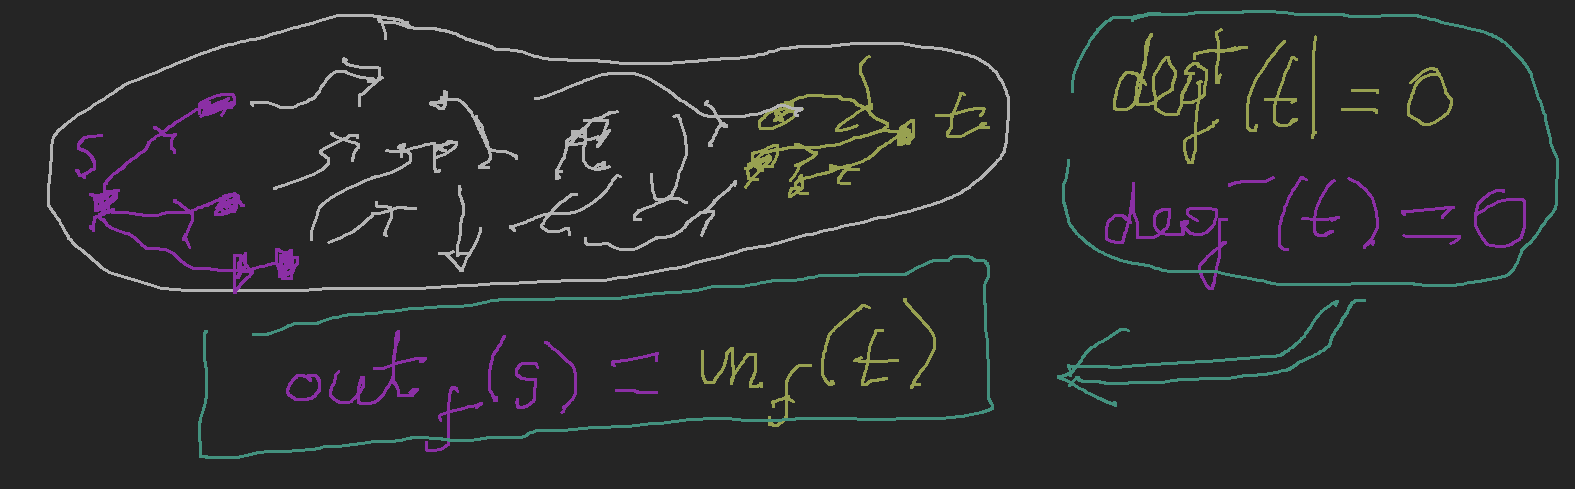 s
t
deg⁺(t) = 0
deg⁻(t) = 0
out_f(s) = in_f(t)